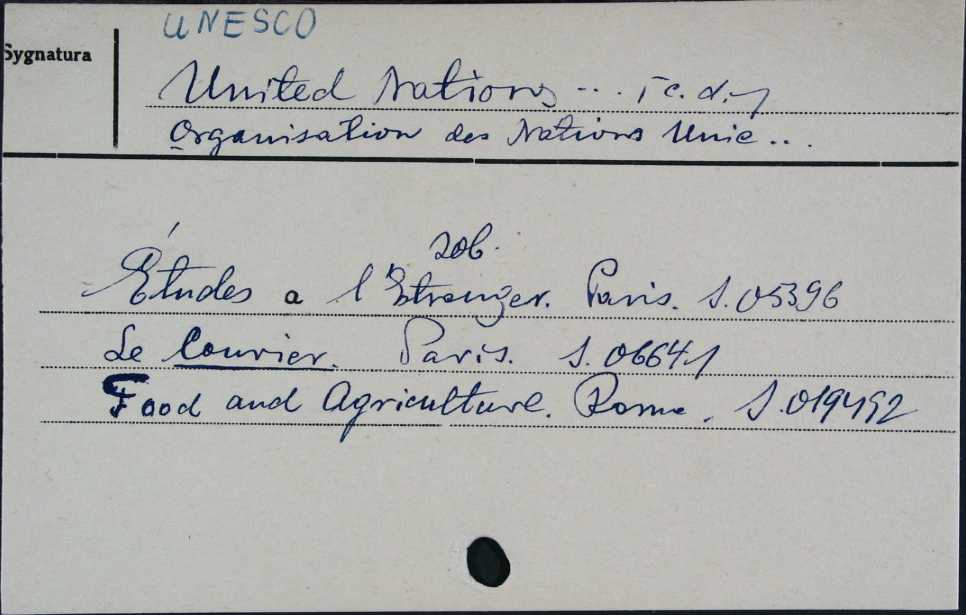 UNESCO
Sygnatura
United Nations ... i c. d.
Organisation des Nations Unie ...
zob.
Études a l'Etranger. Paris. S.05396
Le Courier. Paris. S.06641
Food and Agriculture. Rome. S.019492